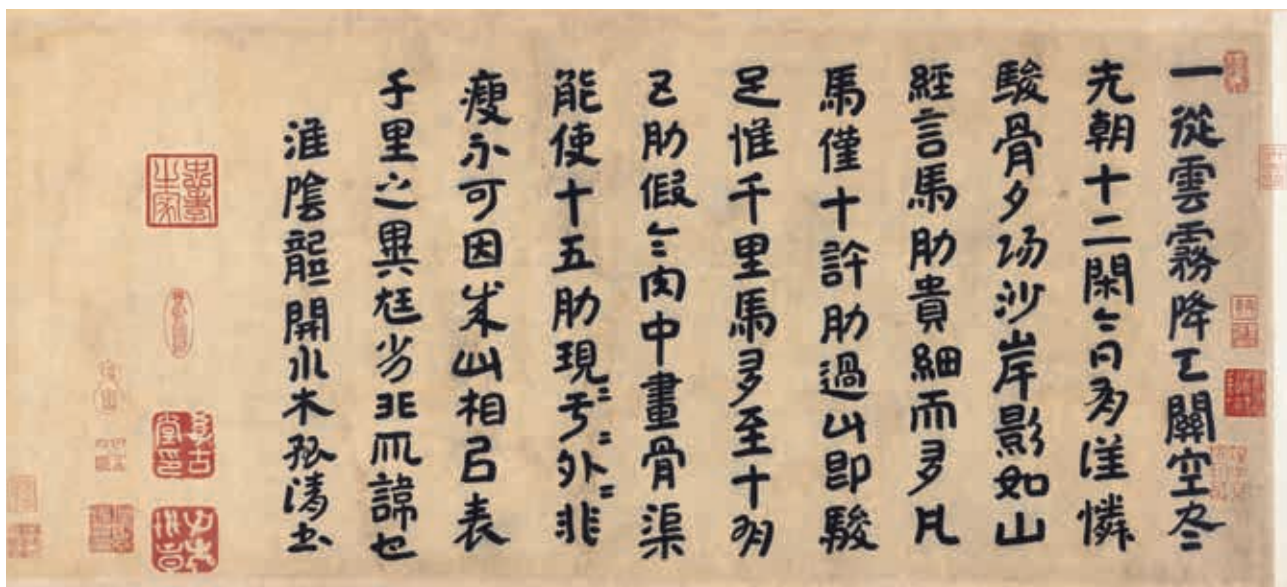 一從雲霧降天關空盡
先朝十二閑今日有誰憐
駿骨夕陽沙岸影如山
經言馬肋貴細而多凡
馬僅十許肋過此即駿
足惟千里馬多至十有
五肋假令肉中畫骨渠
能使十五肋現〻於〻外〻非
瘦不可因成此相以表
千里之異尪劣非所諱也
淮陰龔開水木孤清書